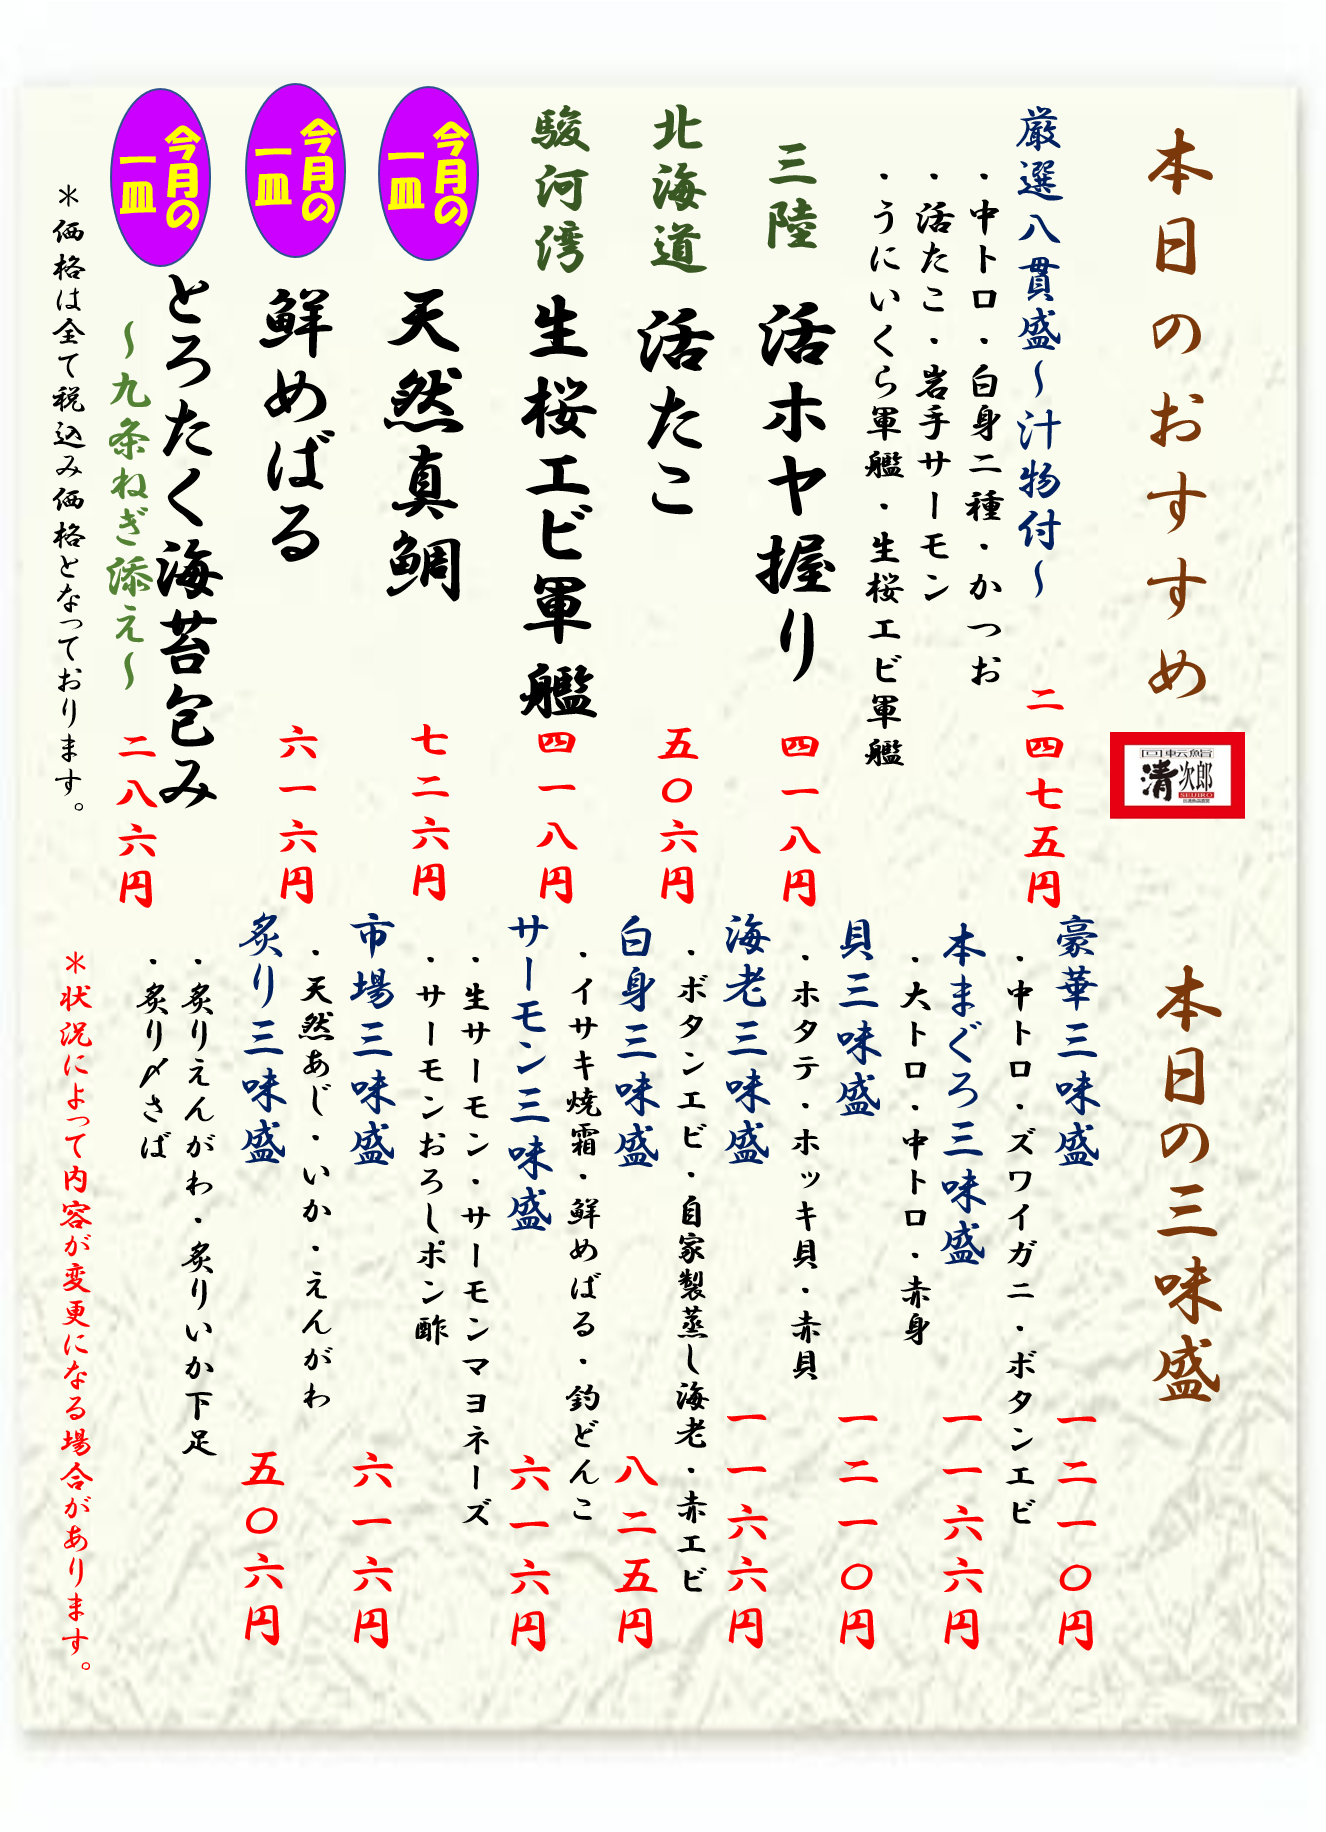 本日のおすすめ
回転鮨
清次郎
SEIJIRO
厳選八貫盛～汁物付～
二四七五円
・中トロ・白身二種・かつお
・活たこ・岩手サーモン
・うにいくら軍艦・生桜エビ軍艦
三陸 活ホヤ握り
四一八円
北海道 活たこ
五〇六円
駿河湾 生桜エビ軍艦
四一八円
今月の
一皿
天然真鯛
七二六円
今月の
一皿
鮮めばる
六一六円
今月の
一皿
とろたく海苔包み
～九条ねぎ添え～
二八六円
＊価格は全て税込み価格となっております。
本日の三味盛
豪華三味盛
一二一〇円
・中トロ・ズワイガニ・ボタンエビ
本まぐろ三味盛
一一六六円
・大トロ・中トロ・赤身
貝三味盛
一二一〇円
・ホタテ・ホッキ貝・赤貝
海老三味盛
一一六六円
・ボタンエビ・自家製蒸し海老・赤エビ
白身三味盛
八二五円
・イサキ焼霜・鮮めばる・釣どんこ
サーモン三味盛
六一六円
・生サーモン・サーモンマヨネーズ
・サーモンおろしポン酢
市場三味盛
六一六円
・天然あじ・いか・えんがわ
炙り三味盛
五〇六円
・炙りえんがわ・炙りいか下足
・炙り〆さば
＊状況によって内容が変更になる場合があります。